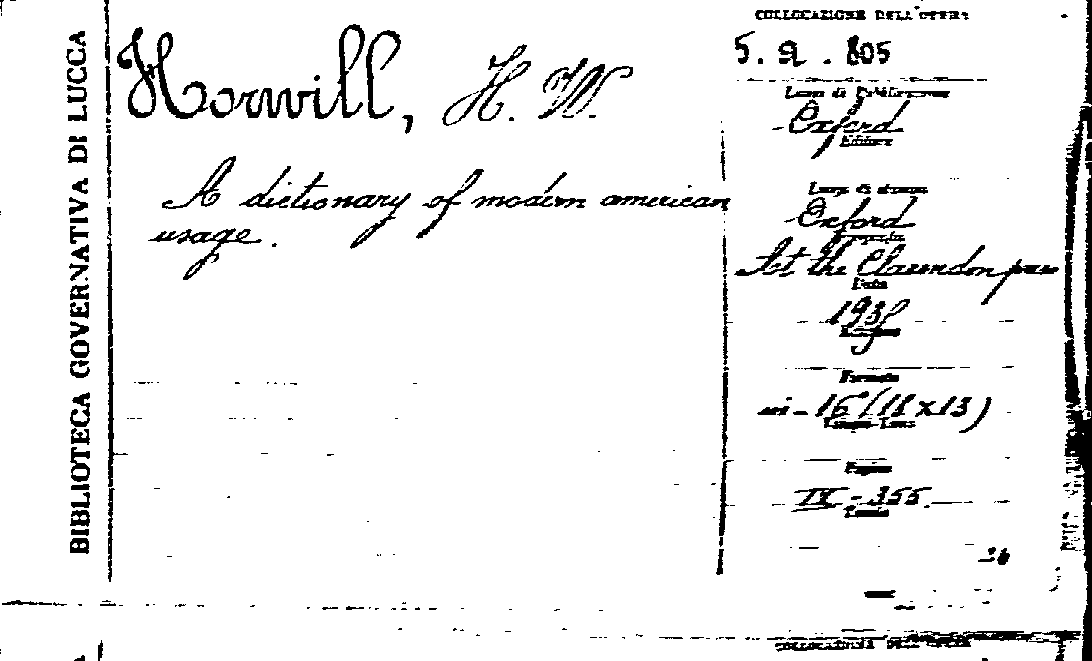 BIBLIOTECA GOVERNATIVA DI LUCCA
Horwill, H. W.
A dictionary of modern american
usage.
COLLOCAZIONE DELL'OPERA
5. a. 805
Luogo di Pubblicazione
Oxford
Editore
Luogo di stampa
Oxford
At the Clarendon press
Data
Formato
in-16° (18x13)
Pagine
IX - 355.
COLLOCAZIONE DELL'OPERA